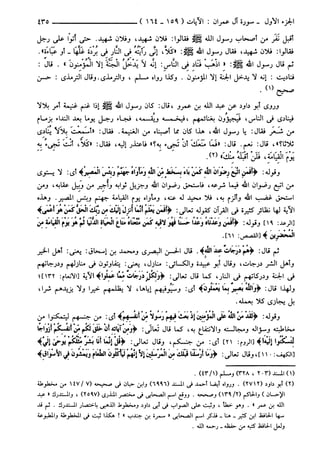 الجزء الأول ـ سورة آل عمران : الآيات ( ١٥٩ ـ ١٦٤ ) ٤٣٥
أقبل نفر من أصحاب رسول الله ﷺ فقالوا: فلان شهيد، وفلان شهيد. حتى أتوا على رجل
فقالوا: فلان شهيد، فقال رسول الله ﷺ : «كلا، إني رأيته في النار في بُردة غلَّها ـ أو عباءة».
ثم قال رسول الله ﷺ : «اذهب فناد في الناس: إنه لا يدخل الجنة إلا المؤمنون». قال :
فناديت : إنه لا يدخل الجنة إلا المؤمنون. وكذا رواه مسلم ، والترمذي. وقال الترمذي : حسن
صحيح (١) .
وروى أبو داود عن عبد الله بن عمرو ، قال: كان رسول الله ﷺ إذا غنم غنيمة أمر بلالا
فينادي في الناس، فيجيؤون بغنائمهم، فيخمسه ويقسمه، فجاء رجل يوما بعد النداء بزمام
من شعر فقال: يا رسول الله، هذا كان مما أصبناه من الغنيمة. فقال: «أسمعت بلالا ينادي
ثلاثا؟»، قال: نعم. قال: «فما منعك أن تجيء به؟» فاعتذر إليه، فقال: «كلا، أنت تجيء به
يوم القيامة، فلن أقبله منك» (٢).
وقوله: ﴿أفمن اتبع رضوان الله كمن باء بسخط من الله ومأواه جهنم وبئس المصير﴾ أي: لا يستوي
من اتبع رضوان الله فيما شرعه، فاستحق رضوان الله وجزيل ثوابه وأجير من وبيل عقابه، ومن
استحق غضب الله وألزم به، فلا محيد له عنه، ومأواه يوم القيامة جهنم وبئس المصير. وهذه
الآية لها نظائر كثيرة في القرآن كقوله تعالى: ﴿أفمن يعلم أنما أنزل إليك من ربك الحق كمن هو أعمى﴾
[الرعد: ١٩] وقوله: ﴿أفمن وعدناه وعدا حسنا فهو لاقيه كمن متعناه متاع الحياة الدنيا ثم هو يوم القيامة من
المحضرين﴾ [القصص: ٦١].
ثم قال: ﴿هم درجات عند الله﴾. قال الحسن البصري ومحمد بن إسحاق: يعني: أهل الخير
وأهل الشر درجات، وقال أبو عبيدة والكسائي: منازل، يعني: يتفاوتون في منازلهم ودرجاتهم
في الجنة ودركاتهم في النار، كما قال تعالى: ﴿ولكل درجات مما عملوا﴾ الآية [الأنعام: ١٣٢]؛
ولهذا قال: ﴿والله بصير بما يعملون﴾ أي: وسيوفيهم إياها، لا يظلمهم خيرا ولا يزيدهم شرا،
بل يجازي كلا بعمله.
وقوله: ﴿لقد من الله على المؤمنين إذ بعث فيهم رسولا من أنفسهم﴾ أي: من جنسهم ليتمكنوا من
مخاطبته وسؤاله ومجالسته والانتفاع به، كما قال تعالى: ﴿ومن آياته أن خلق لكم من أنفسكم أزواجا
لتسكنوا إليها﴾ [الروم: ٢١] أي: من جنسكم. وقال تعالى: ﴿قل إنما أنا بشر مثلكم يوحى إلي﴾
[الكهف: ١١٠]، وقال تعالى: ﴿وما أرسلنا قبلك من المرسلين إلا إنهم ليأكلون الطعام ويمشون في الأسواق﴾
(١) المسند (٢٠٣ ، ٣٢٨) ومسلم (٤٣/١).
(٢) أبو داود (٢٧١٢) . ورواه أيضا أحمد في المسند (٦٩٩٦) وابن حبان في صحيحه (٧ / ١٤٧ من مخطوطة
الإحسان) والحاكم (١٣٩/٢) وصححه . ووقع اسم الصحابي في مختصر المنذري (٢٥٩٧)، والمستدرك « عبد
الله بن عمر » . وهو خطأ ، وثبت على الصواب في أبي داود ومخطوط الذهبي باختصار المستدرك. ثم قد
سها الحافظ ابن كثير ـ هنا ـ فذكر اسم الصحابي « سمرة بن جندب » ! هكذا ثبت في المخطوطة والمطبوعة
ولعل الحافظ كتبه من حفظه ـ رحمه الله .